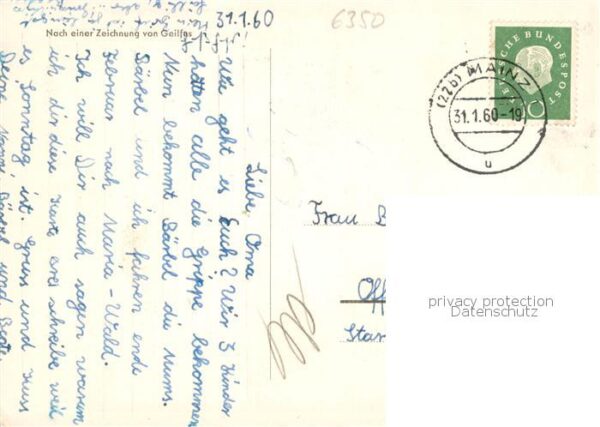 31.1.60
6350
Nach einer Zeichnung von Geilfus
Liebe Oma
Wie geht es Euch? Wir 3 Kinder
hatten alle die Grippe bekommen
Nun bekommt Bärbel die Mums.
Bärbel und ich fahren ende
Februar nach Maria-Wald.
Ich will Dir auch sagen warum
ich dir diese Karte erst schreibe weil
es Sonntag ist. Gruss und Kuss
Deine Bärbel und Beate.
Frau B
Off
Star
DEUTSCHE BUNDESPOST
10
(22b) MAINZ
31.1.60-19
u
privacy protection
Datenschutz